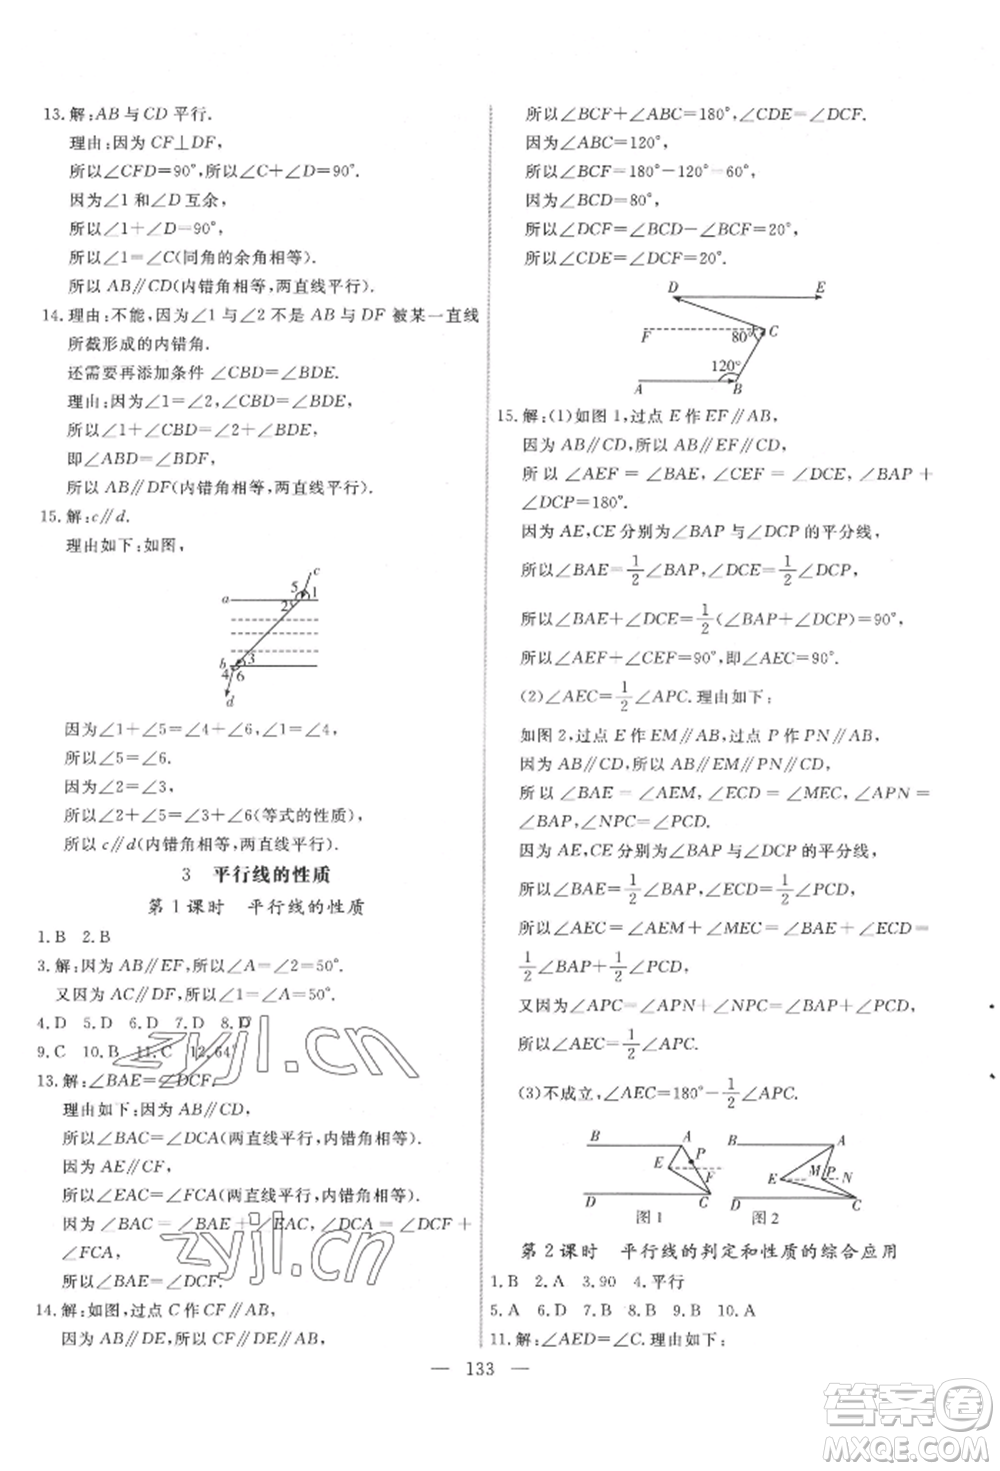 13.解:AB与CD平行.
理由:因为CF⊥DF,
所以∠CFD=90°,所以∠C+∠D=90°.
因为∠1和∠D互余,
所以∠1+∠D=90°,
所以∠1=∠C(同角的余角相等).
所以AB∥CD(内错角相等,两直线平行).
14.理由:不能,因为∠1与∠2不是AB与DF被某一直线
所截形成的内错角.
还需要再添加条件∠CBD=∠BDE.
理由:因为∠1=∠2,∠CBD=∠BDE,
所以∠1+∠CBD=∠2+∠BDE,
即∠ABD=∠BDF,
所以AB∥DF(内错角相等,两直线平行).
15.解:c∥d.
理由如下:如图,
c
5
a
2
1
b
3
4
6
d
因为∠1+∠5=∠4+∠6,∠1=∠4,
所以∠5=∠6.
因为∠2=∠3,
所以∠2+∠5=∠3+∠6(等式的性质)
所以c∥d(内错角相等,两直线平行).
3 平行线的性质
第1课时 平行线的性质
1.B 2.B
3.解:因为AB∥EF,所以∠A=∠2=50°.
又因为AC∥DF,所以∠1=∠A=50°.
4.D 5.D 6.D 7.D 8.D
9.C 10.B 11.C 12.64°
13.解:∠BAE=∠DCF.
理由如下:因为AB∥CD,
所以∠BAC=∠DCA(两直线平行,内错角相等).
因为AE∥CF,
所以∠EAC=∠FCA(两直线平行,内错角相等).
因为∠BAC=∠BAE+∠EAC,∠DCA=∠DCF+
∠FCA,
所以∠BAE=∠DCF.
14.解:如图,过点C作CF∥AB,
因为AB∥DE,所以CF∥DE∥AB,
所以∠BCF+∠ABC=180°,∠CDE=∠DCF.
因为∠ABC=120°,
所以∠BCF=180°-120°=60°.
因为∠BCD=80°,
所以∠DCF=∠BCD-∠BCF=20°,
所以∠CDE=∠DCF=20°.
D E
F 80° C
120°
A B
15.解:(1)如图1,过点E作EF∥AB,
因为AB∥CD,所以AB∥EF∥CD,
所以∠AEF=∠BAE,∠CEF=∠DCE,∠BAP+
∠DCP=180°.
因为AE,CE分别为∠BAP与∠DCP的平分线,
所以∠BAE=1/2∠BAP,∠DCE=1/2∠DCP,
所以∠BAE+∠DCE=1/2(∠BAP+∠DCP)=90°,
所以∠AEF+∠CEF=90°,即∠AEC=90°.
(2)∠AEC=1/2∠APC.理由如下:
如图2,过点E作EM∥AB,过点P作PN∥AB,
因为AB∥CD,所以AB∥EM∥PN∥CD,
所以∠BAE=∠AEM,∠ECD=∠MEC,∠APN=
∠BAP,∠NPC=∠PCD.
因为AE,CE分别为∠BAP与∠DCP的平分线,
所以∠BAE=1/2∠BAP,∠ECD=1/2∠PCD,
所以∠AEC=∠AEM+∠MEC=∠BAE+∠ECD=
1/2∠BAP+1/2∠PCD.
又因为∠APC=∠APN+∠NPC=∠BAP+∠PCD,
所以∠AEC=1/2∠APC.
(3)不成立,∠AEC=180°-1/2∠APC.
B A
E P
F
D C
图1
B A
E M P N
D C
图2
第2课时 平行线的判定和性质的综合应用
1.B 2.A 3.90 4.平行
5.A 6.D 7.D 8.B 9.B 10.A
11.解:∠AED=∠C.理由如下:
— 133 —
zyjl.cn
zyjl.cn
答案圈
MXQE.COM